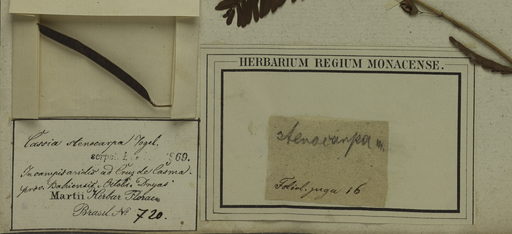 Cassia stenocarpa Vogel.
869.
In campis aridis ad Cruz de Casma
prov. Bahiensis. Octobr. Dryas
Martii Herbar. Florae
Brasil. No 720.
HERBARIUM REGIUM MONACENSE.
stenocarpa m.
Foliol. juga 16